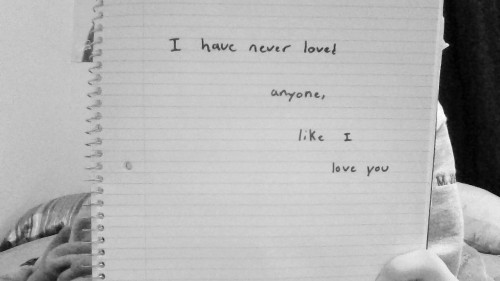 I have never loved
anyone,
like I
love you